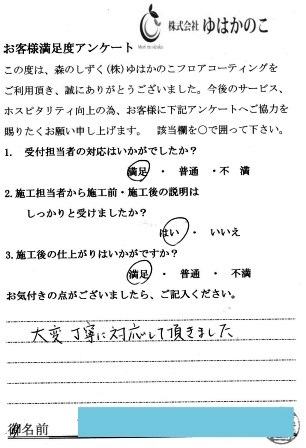 株式会社 ゆはかのこ
お客様満足度アンケート
この度は、森のしずく(株)ゆはかのこフロアコーティングを
ご利用頂き、誠にありがとうございました。今後のサービス、
ホスピタリティ向上の為、お客様に下記アンケートへご協力を
賜りたくお願い申し上げます。 該当欄を○で囲って下さい。
1. 受付担当者の対応はいかがでしたか?
満足 ・ 普通 ・不 満
2.施工担当者から施工前・施工後の説明は
しっかりと受けましたか?
はい ・ いいえ
3.施工後の仕上がりはいかがですか?
満足 ・ 普通 ・ 不満
お気付きの点がございましたら、ご記入ください。
大変丁寧に対応して頂きました
御名前